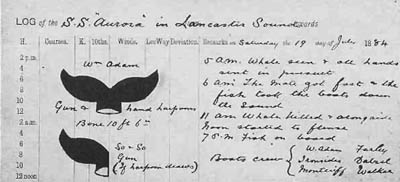 LOG of the S.S. "Aurora" in Lancaster Sound
H. Courses. K. 10ths. Winds. LeeWay Deviation. Remarks on Saturday the 19 day of July 1884
2 p.m.
4
6
8
10
12
2 a.m.
4
6
8
10
12 noon
Wm Adam
Gun & hand harpoon
Bone 10 ft 6 in
So & So
Gun
(If harpoon draws)
5 A.M. Whale seen & all hands
sent in pursuit
6 A.M. The Mate got fast & the
fish took the boats down
the Sound
11 A.M. Whale killed & alongside
Noon started to flense
7 P.M. Fish on board
Boats crew { W. Adam
Ironsides
Moncrieff Walker